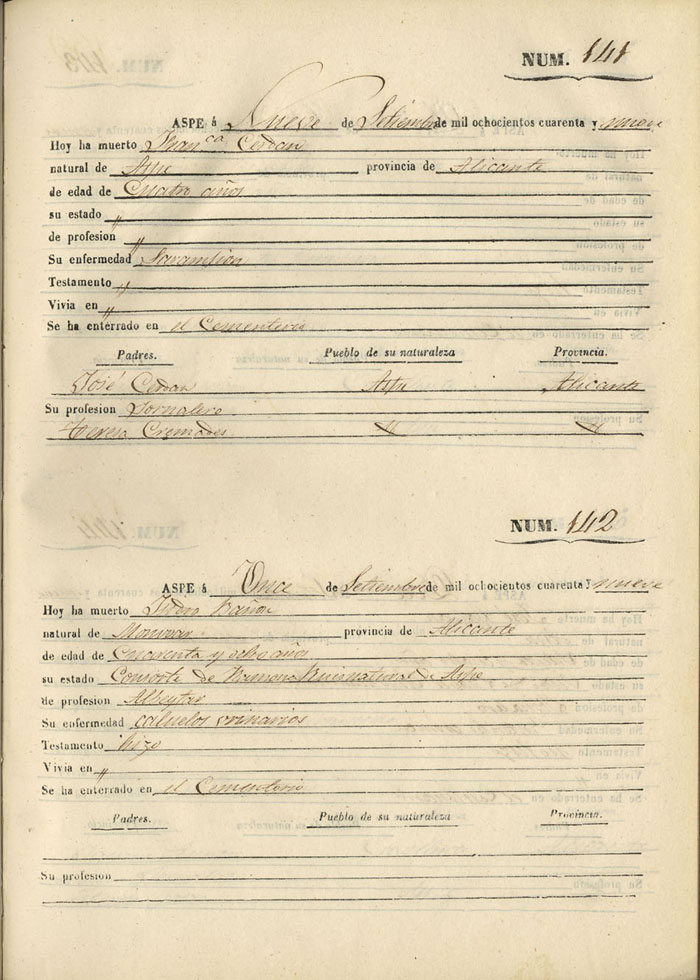 NUM. 141
ASPE á Nueve de Setiembre de mil ochocientos cuarenta y nueve
Hoy ha muerto Fran.ca Cerdan
natural de Aspe provincia de Alicante
de edad de Cuatro años
su estado "
de profesion "
Su enfermedad Sarampion
Testamento "
Vivia en "
Se ha enterrado en el Cementerio
Padres. Pueblo de su naturaleza Provincia.
José Cerdan Aspe Alicante
Su profesion Jornalero
Teresa Cremades " "
NUM. 142
ASPE á Once de Setiembre de mil ochocientos cuarenta y nueve
Hoy ha muerto
natural de Monovar provincia de Alicante
de edad de Cuarenta y ocho años
su estado Consorte de Ramona natural de Aspe
de profesion Albeytar
Su enfermedad calculos urinarios
Testamento hizo
Vivia en "
Se ha enterrado en el Cementerio
Padres. Pueblo de su naturaleza Provincia.
Su profesion